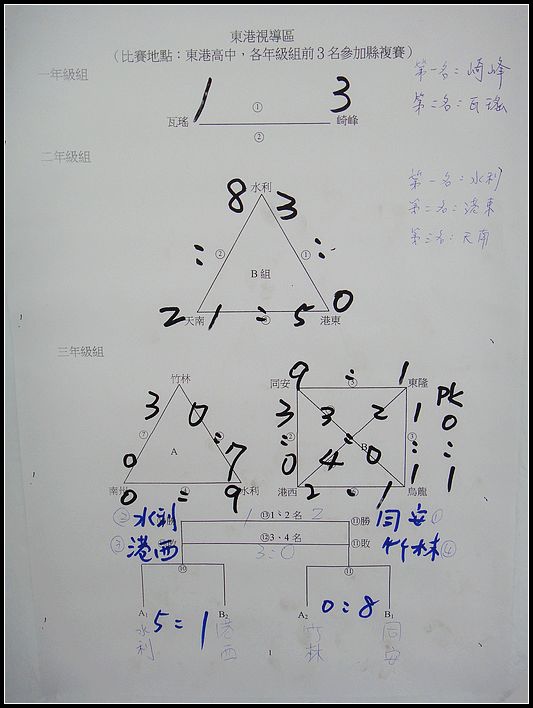 東港視導區
(比賽地點：東港高中，各年級組前3名參加縣複賽)
一年級組
第一名：崎峰
第二名：瓦瑤
1 ① 3
瓦瑤 崎峰
②
二年級組
第一名：水利
第二名：港東
第三名：天南
水利
8 3
: ② ① :
B組
2 1 : 5 0
天南 港東
三年級組
竹林
同安 9 : 1 東隆
3 0 :
A
0 7
南州 0 = 9 水利
3 3 2 1 PK 0
: = : :
0 4 0 1 1
港西 2 : 1 烏龍
② 水利 勝 1 ⑬1、2名 2 ⑪勝 同安 ①
③ 港西 敗 ⑫3、4名 ⑪敗 竹林 ④
3:0
⑩ ⑪
A1 5 = 1 B2 A2 0 : 8 B1
水利 港西 竹林 同安